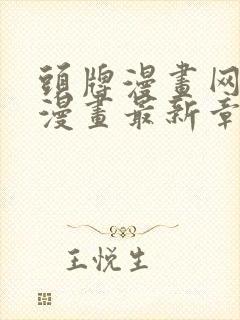 頭牌漫畫网
漫畫最新章
王悦生